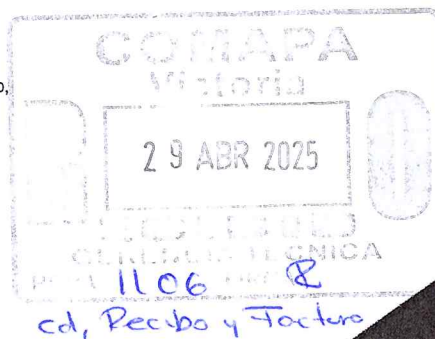 COMAPA
Victoria
o,
29 ABR 2025
GERENCIA TECNICA
11:06
cd, Recibo y Factura